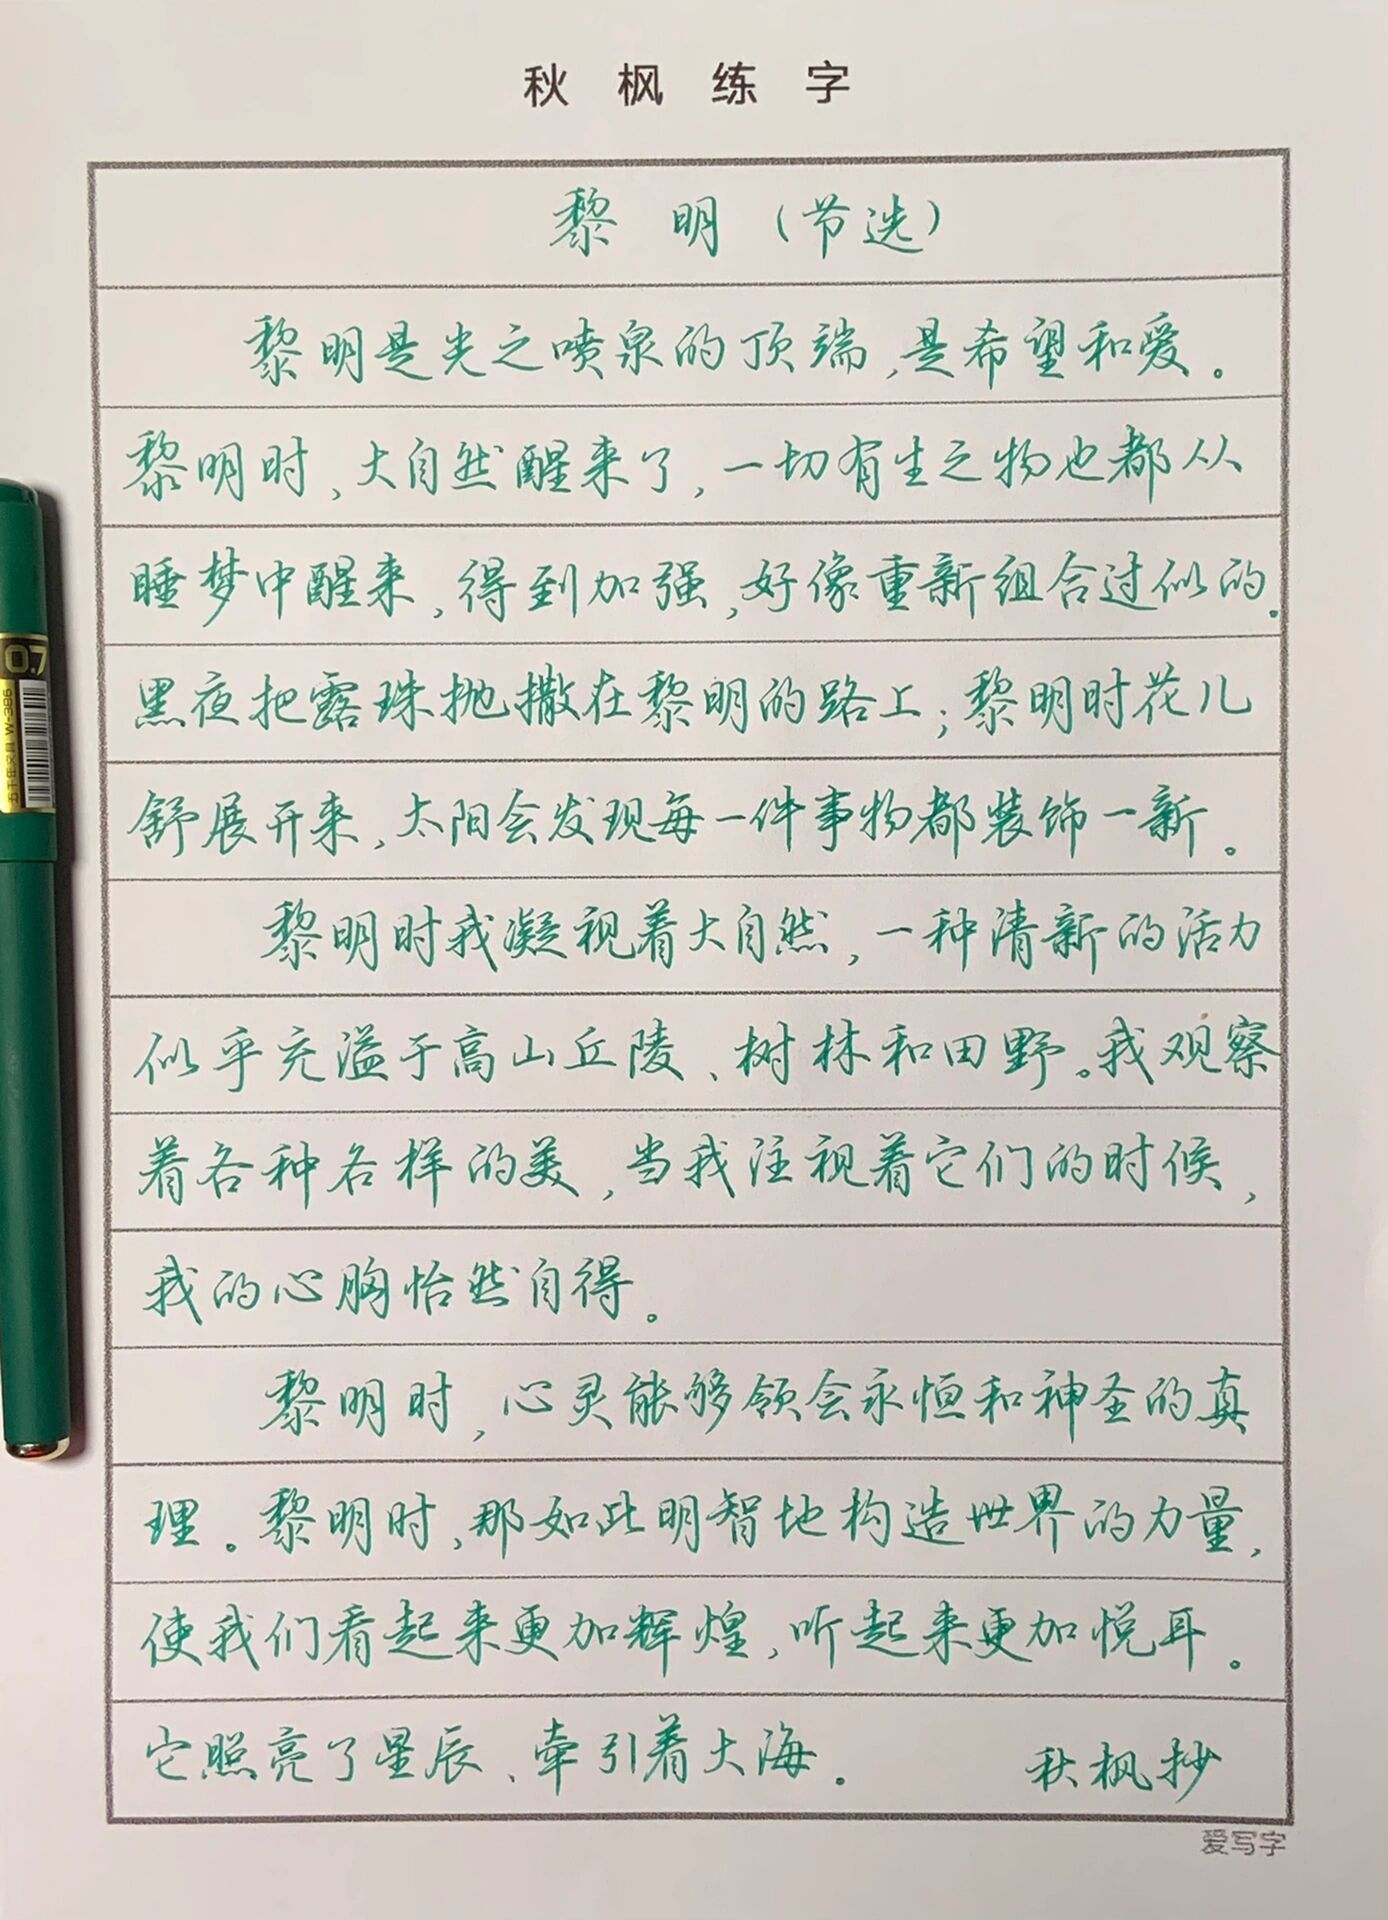 秋枫练字
黎明（节选）
黎明是光之喷泉的顶端,是希望和爱。
黎明时,大自然醒来了,一切有生之物也都从
睡梦中醒来,得到加强,好像重新组合过似的.
黑夜把露珠抛撒在黎明的路上;黎明时花儿
舒展开来,太阳会发现每一件事物都装饰一新。
黎明时我凝视着大自然,一种清新的活力
似乎充溢于高山丘陵、树林和田野。我观察
着各种各样的美,当我注视着它们的时候,
我的心胸怡然自得。
黎明时,心灵能够领会永恒和神圣的真
理。黎明时,那如此明智地构造世界的力量,
使我们看起来更加辉煌,听起来更加悦耳。
它照亮了星辰、牵引着大海。 秋枫抄
爱写字
0.7
五千年文具 W-386